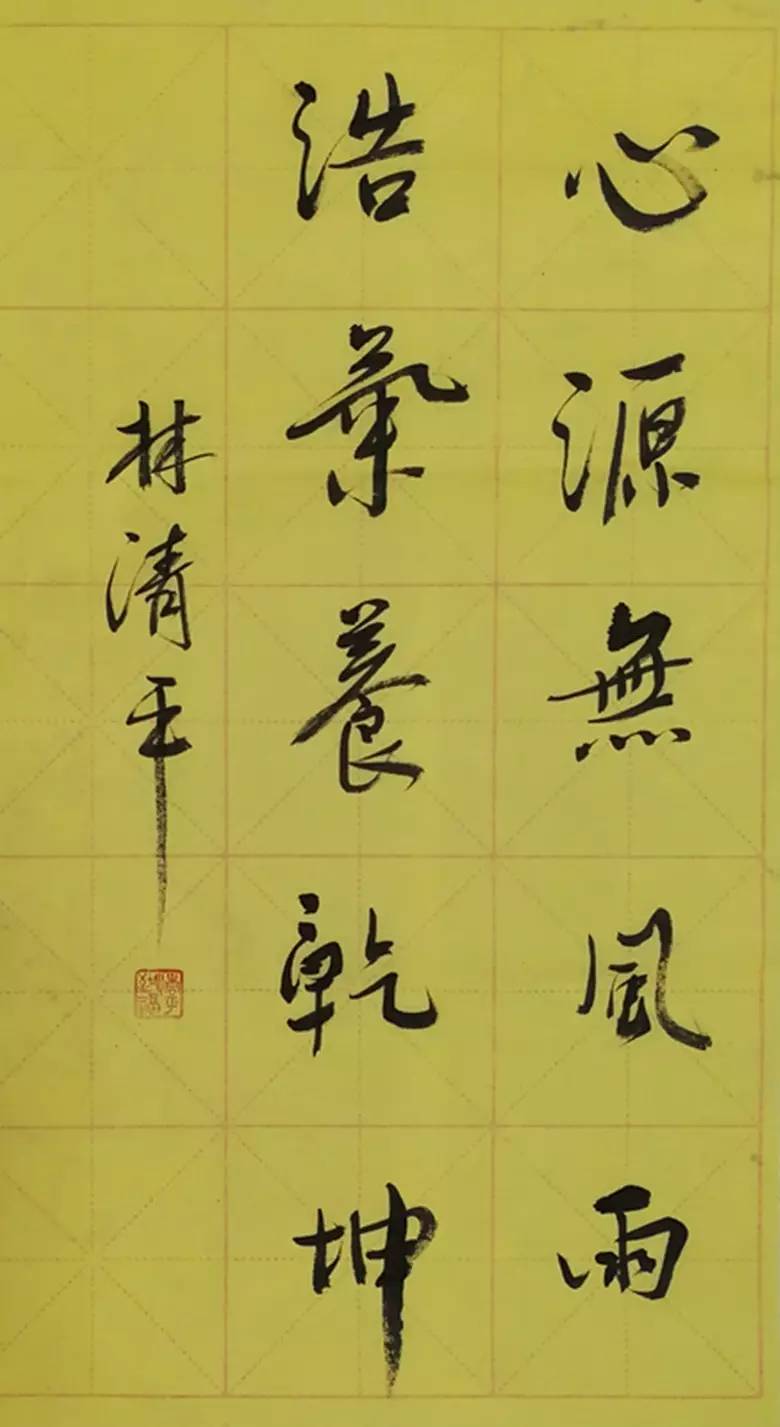 心源無風雨
浩氣養乾坤
林清平